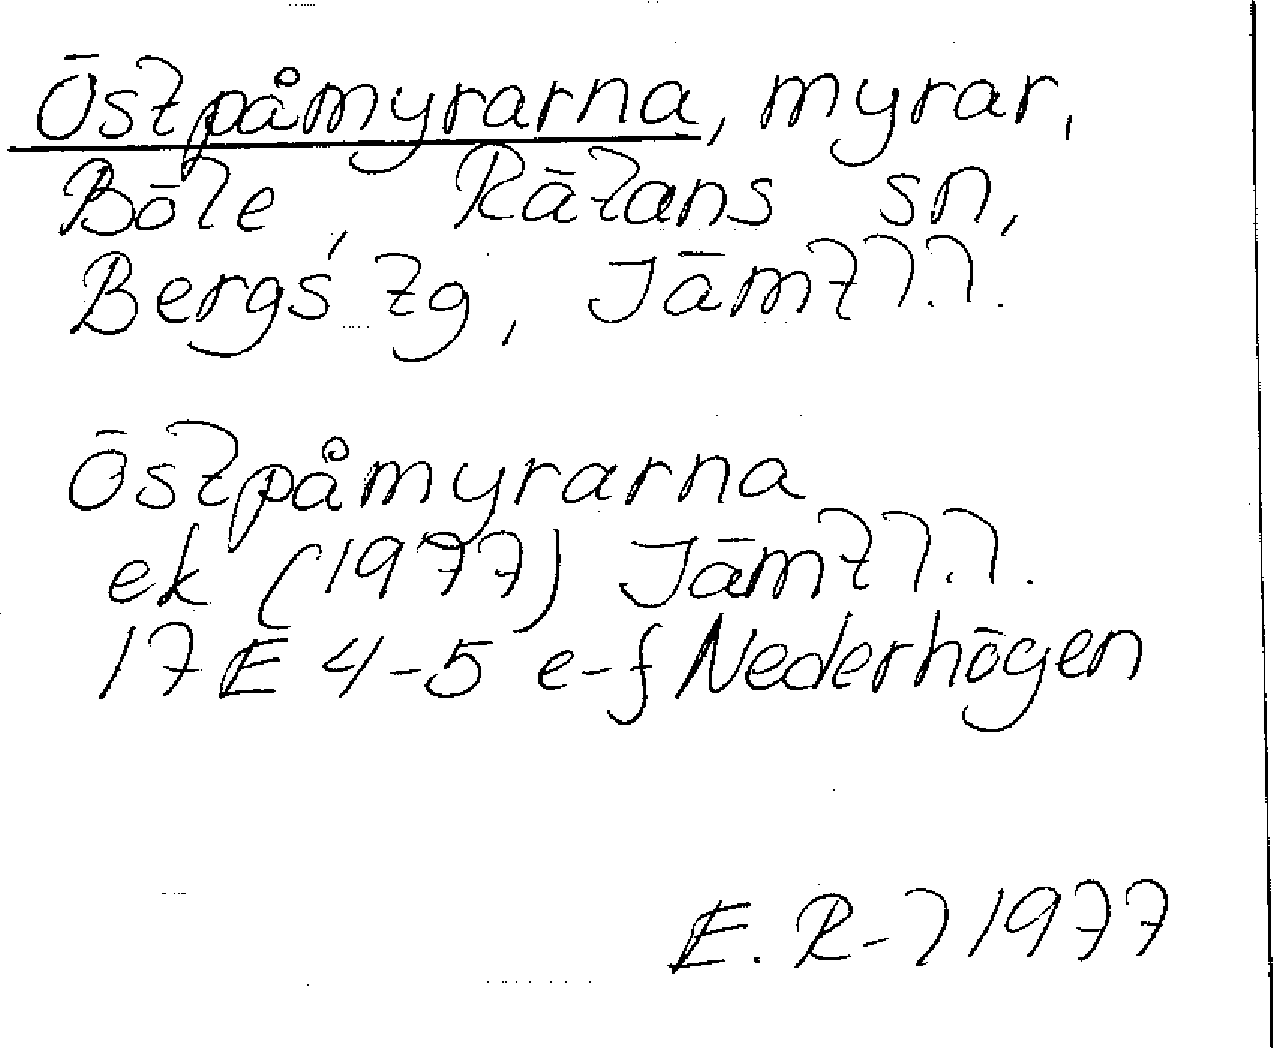 Östpåmyrarna, myrar,
Böle, Rätans sn,
Bergs tg, Jämtl.l.
Östpåmyrarna
ek (1977) Jämtl.l.
17E 4-5 e-f Nederhögen
E. R-l 1977